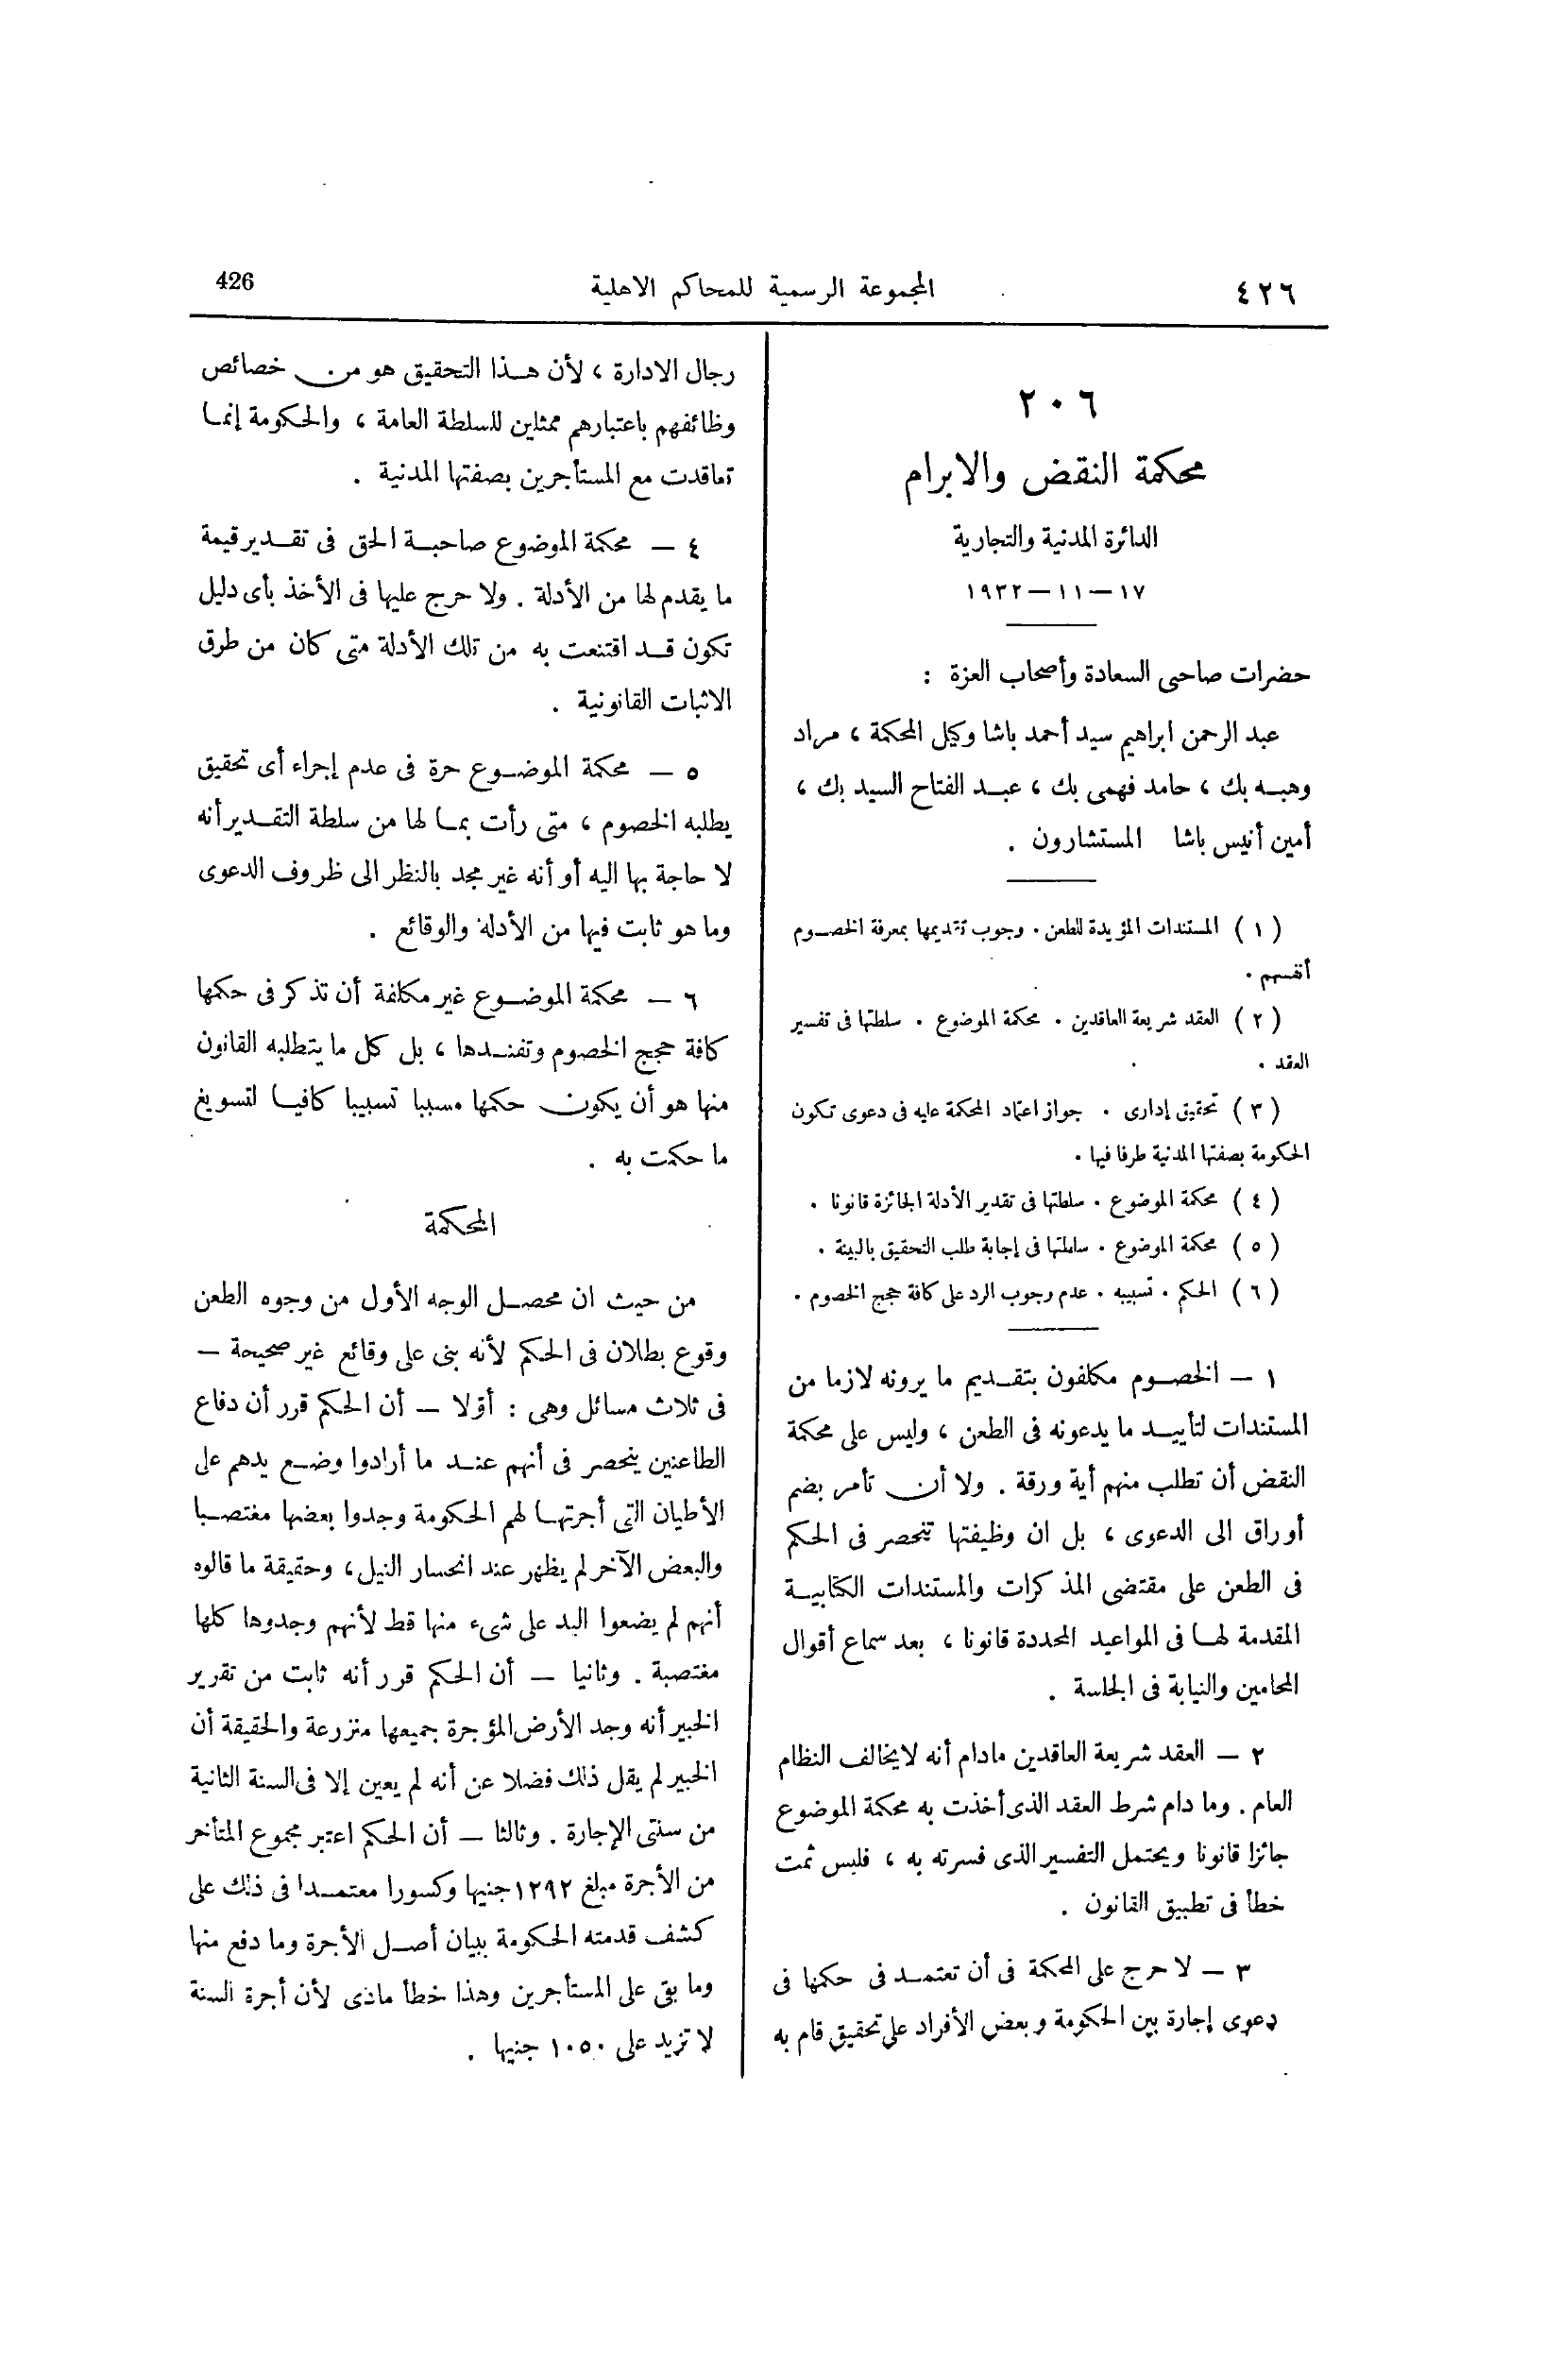 ٤٢٦
المجموعة الرسمية للمحاكم الاهلية
426
٢٠٦
محكمة النقض والابرام
الدائرة المدنية والتجارية
١٧ — ١١ — ١٩٣٢
حضرات صاحبى السعادة وأصحاب العزة :
عبد الرحمن ابراهيم سيد أحمد باشا وكيل المحكمة ، مراد
وهبه بك ، حامد فهمى بك ، عبد الفتاح السيد بك ،
أمين أنيس باشا المستشارون .
( ١ ) المستندات المؤيدة للطعن . وجوب تقديمها بمعرفة الخصوم
أنفسهم .
( ٢ ) العقد شريعة العاقدين . محكمة الموضوع . سلطتها فى تفسير
العقد .
( ٣ ) تحقيق إدارى . جواز اعتماد المحكمة عليه فى دعوى تكون
الحكومة بصفتها المدنية طرفا فيها .
( ٤ ) محكمة الموضوع . سلطتها فى تقدير الأدلة الجائزة قانونا .
( ٥ ) محكمة الموضوع . سلطتها فى إجابة طلب التحقيق بالبينة .
( ٦ ) الحكم . تسبيبه . عدم وجوب الرد على كافة حجج الخصوم .
١ — الخصوم مكلفون بتقديم ما يرونه لازما من
المستندات لتأييد ما يدعونه فى الطعن ، وليس على محكمة
النقض أن تطلب منهم أية ورقة . ولا أن تأمر بضم
أوراق الى الدعوى ، بل ان وظيفتها تنحصر فى الحكم
فى الطعن على مقتضى المذكرات والمستندات الكتابية
المقدمة لها فى المواعيد المحددة قانونا ، بعد سماع أقوال
المحامين والنيابة فى الجلسة .
٢ — العقد شريعة العاقدين مادام أنه لايخالف النظام
العام . وما دام شرط العقد الذى أخذت به محكمة الموضوع
جائزا قانونا ويحتمل التفسير الذى فسرته به ، فليس ثمت
خطأ فى تطبيق القانون .
٣ — لا حرج على المحكمة فى أن تعتمد فى حكمها فى
دعوى إجارة بين الحكومة وبعض الأفراد على تحقيق قام به
رجال الادارة ، لأن هذا التحقيق هو من خصائص
وظائفهم باعتبارهم ممثلين للسلطة العامة ، والحكومة إنما
تعاقدت مع المستأجرين بصفتها المدنية .
٤ — محكمة الموضوع صاحبة الحق فى تقدير قيمة
ما يقدم لها من الأدلة . ولا حرج عليها فى الأخذ بأى دليل
تكون قد اقتنعت به من تلك الأدلة متى كان من طرق
الاثبات القانونية .
٥ — محكمة الموضوع حرة فى عدم إجراء أى تحقيق
يطلبه الخصوم ، متى رأت بما لها من سلطة التقدير أنه
لا حاجة بها اليه أو أنه غير مجد بالنظر الى ظروف الدعوى
وما هو ثابت فيها من الأدلة والوقائع .
٦ — محكمة الموضوع غير مكلفة أن تذكر فى حكمها
كافة حجج الخصوم وتفندها ، بل كل ما يتطلبه القانون
منها هو أن يكون حكمها مسببا تسبيبا كافيا لتسويغ
ما حكمت به .
المحكمة
من حيث ان محصل الوجه الأول من وجوه الطعن
وقوع بطلان فى الحكم لأنه بنى على وقائع غير صحيحة —
فى ثلاث مسائل وهى : أوّلا — أن الحكم قرر أن دفاع
الطاعنين ينحصر فى أنهم عند ما أرادوا وضع يدهم على
الأطيان التى أجرتها لهم الحكومة وجدوا بعضها مغتصبا
والبعض الآخر لم يظهر عند انحسار النيل ، وحقيقة ما قالوه
أنهم لم يضعوا اليد على شىء منها قط لأنهم وجدوها كلها
مغتصبة . وثانيا — أن الحكم قرر أنه ثابت من تقرير
الخبير أنه وجد الأرض المؤجرة جميعها منزرعة والحقيقة أن
الخبير لم يقل ذلك فضلا عن أنه لم يعين إلا فى السنة الثانية
من سنتى الإجارة . وثالثا — أن الحكم اعتبر مجموع المتأخر
من الأجرة مبلغ ١٢٩٢ جنيها وكسورا معتمدا فى ذلك على
كشف قدمته الحكومة ببيان أصل الأجرة وما دفع منها
وما بقى على المستأجرين وهذا خطأ مادى لأن أجرة السنة
لا تزيد على ١٠٥٠ جنيها .